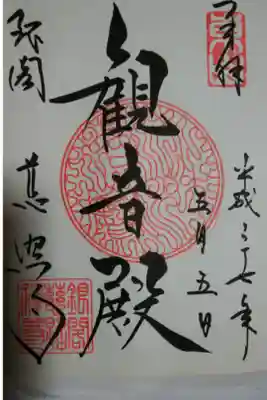 奉拝
平成二七年
五月五日
観音殿
銀閣
慈照寺